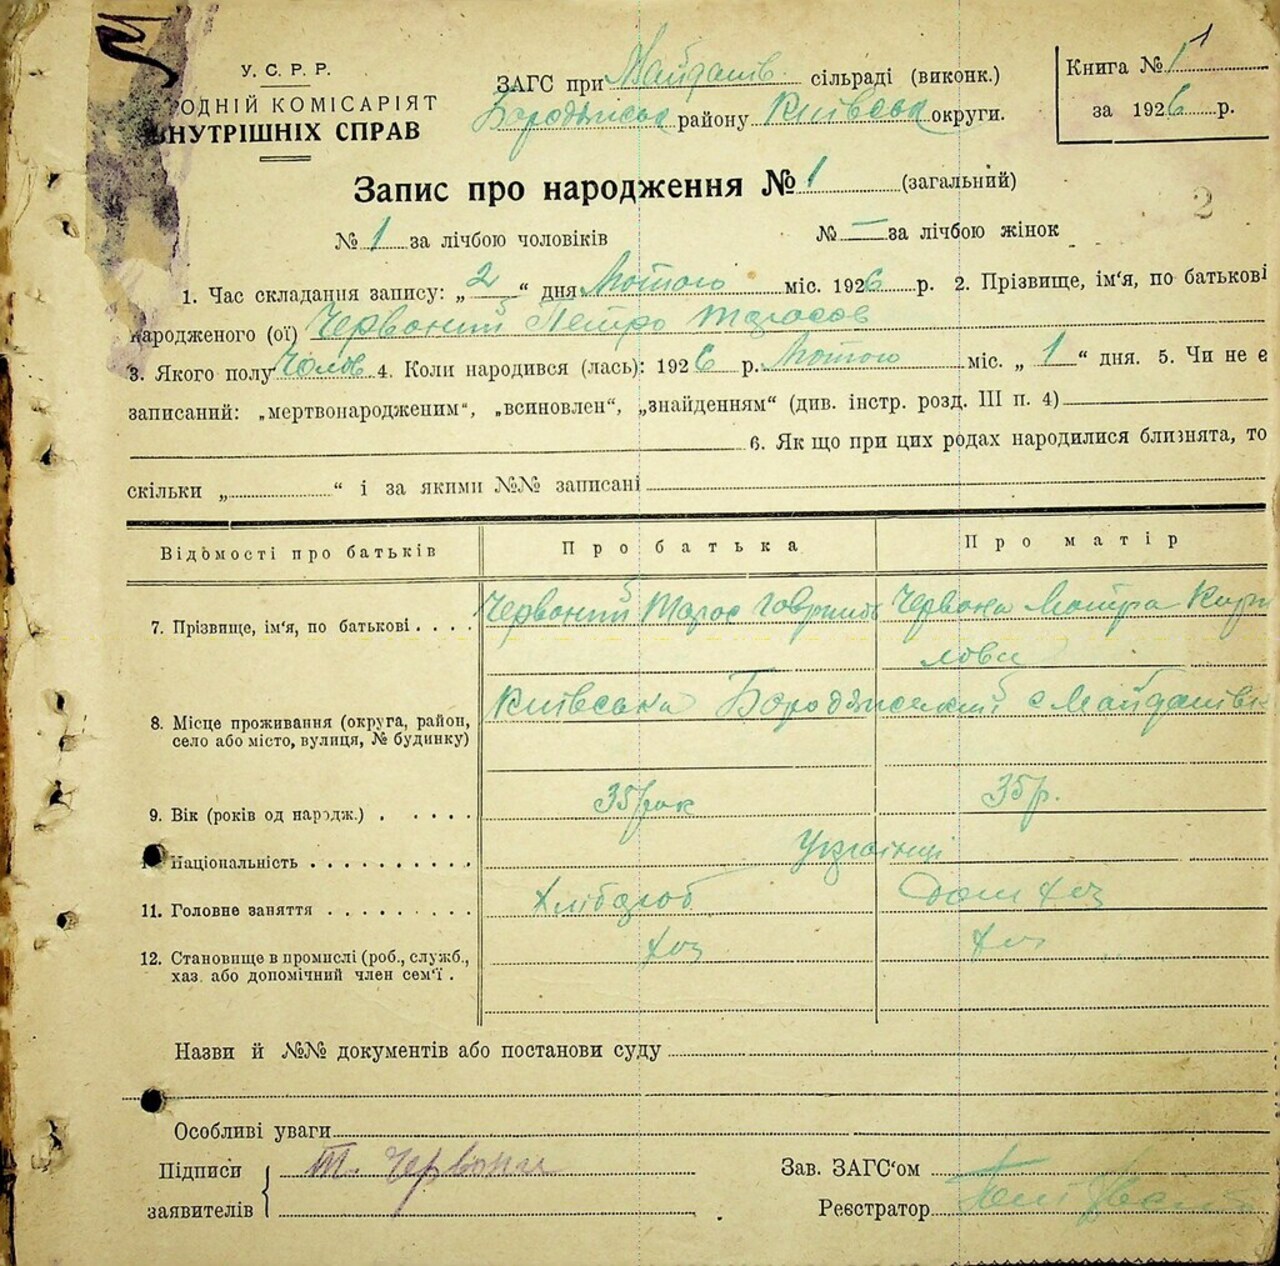 У. С. Р. Р.
РОДНІЙ КОМІСАРІЯТ
ВНУТРІШНІХ СПРАВ
ЗАГС при Майданів. сільраді (виконк.)
Бородянськ району Київськ округи.
Книга № 1
за 1926 р.
1
Запис про народження № 1 (загальний)
2
№ 1 за лічбою чоловіків № — за лічбою жінок
1. Час складання запису: „2“ дня Лютого міс. 1926 р. 2. Прізвище, ім‘я, по батькові
народженого (ої) Червоний Петро Тарасов
3. Якого полу Чолов 4. Коли народився (лась): 1926 р. Лютого міс. „ 1 “ дня. 5. Чи не є
записаний: „мертвонародженим“, „всиновлен“, „знайденням“ (див. інстр. розд. III п. 4)
6. Як що при цих родах народилися близнята, то
скільки „ “ і за якими №№ записані
Відомості про батьків Про батька Про матір
7. Прізвище, ім‘я, по батькові . . . . Червоний Тарас Гаврилів Червона Мотра Кири
лова
Київська Бородянський с Майданівк
8. Місце проживання (округа, район,
село або місто, вулиця, № будинку)
9. Вік (років од народж.) . . . . . 35/рок 35/р.
Національність . . . . . . . . . . Українці
11. Головне заняття . . . . . . . . . Хлібороб Дом хоз
12. Становище в промислі (роб., служб., хоз хоз
хаз. або допомічний член сем‘ї .
Назви й №№ документів або постанови суду
Особливі уваги
Підписи Т. Червоний
заявителів
Зав. ЗАГС‘ом
Реєстратор